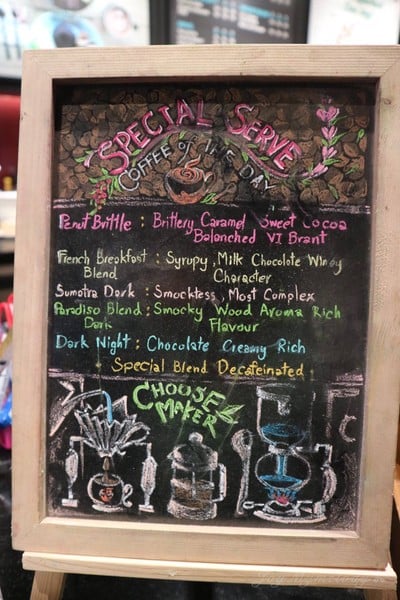 SPECIAL SERVE
COFFEE OF THE DAY
Penut Brittle : Brittery Caramel Sweet Cocoa
Balanched VI Brant
French Breakfast : Syrupy, Milk Chocolate Winey
Blend Character
Sumatra Dark : Smocktess, Most Complex
Paradiso Blend : Smocky Wood Aroma Rich
Dark Flavour
Dark Night : Chocolate Creamy Rich
Special Blend Decafeinated
CHOOSE
MAKER